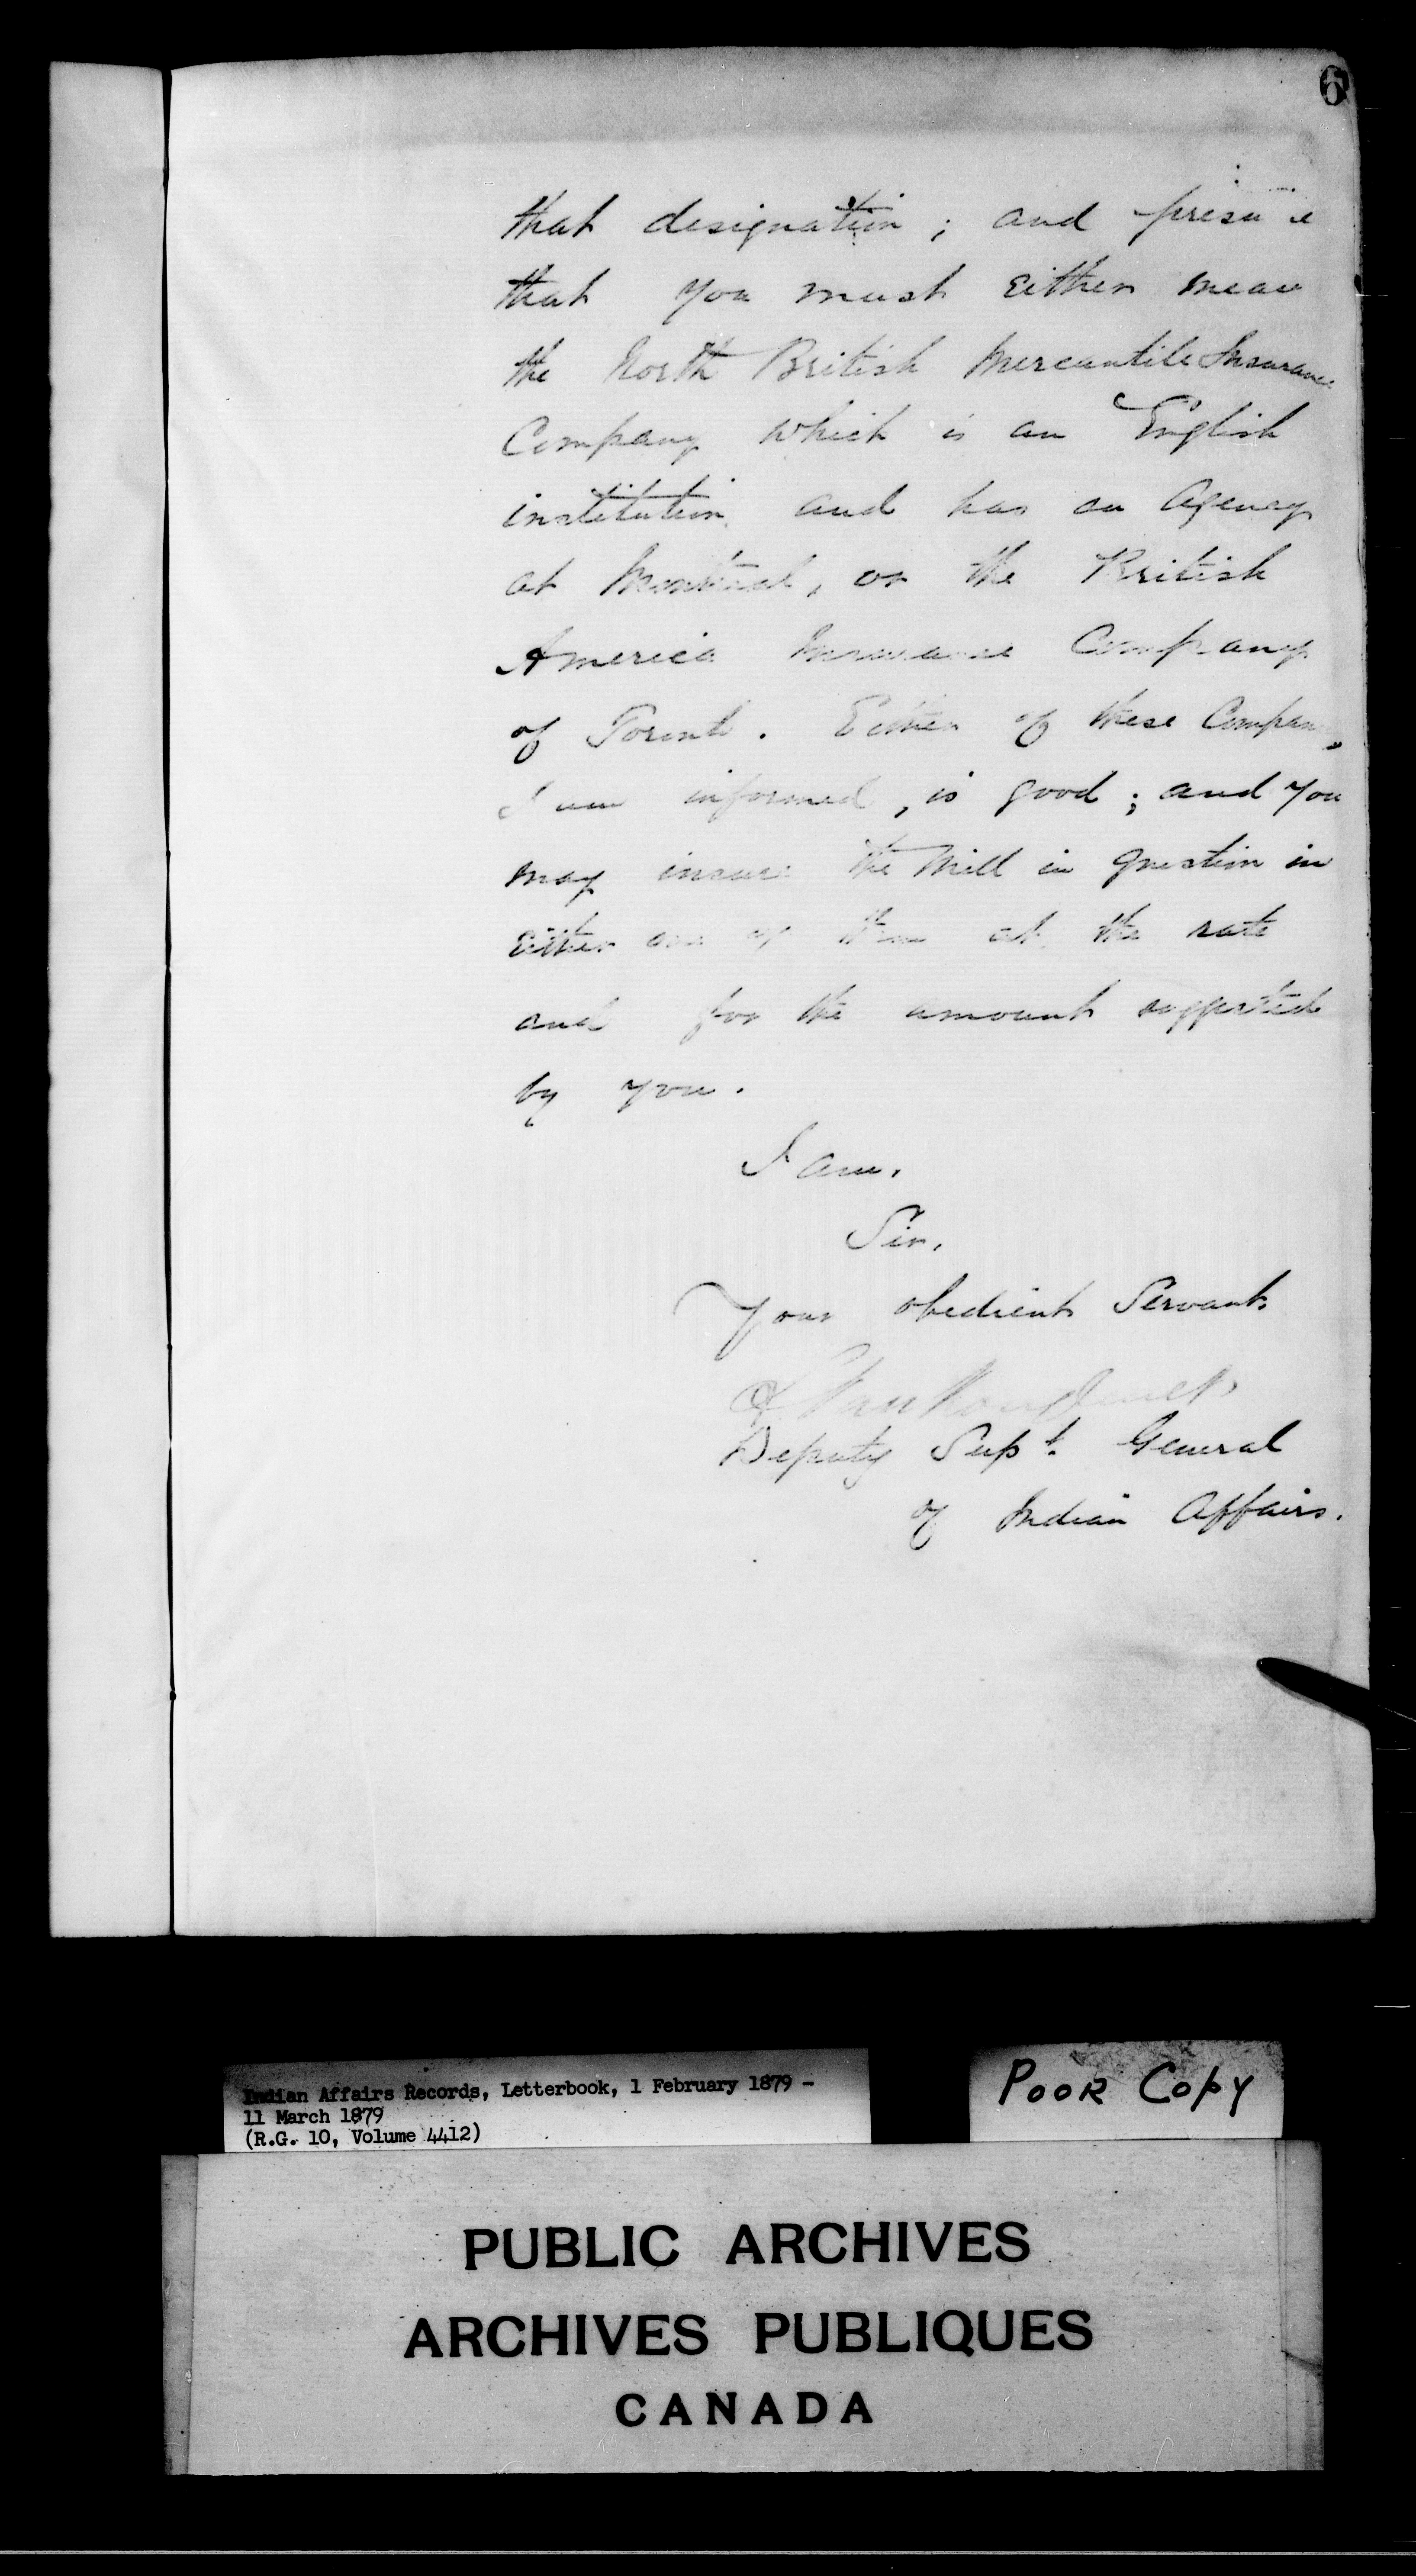 6
that designation; and presume
that you must either mean
the North British Mercantile Insurance
Company which is an English
institution and has an Agency
at Montreal, or the British
America Insurance Company
of Toronto. Either of these Companies,
I am informed, is good; and you
may insure the Mill in question in
either one of them at the rate
and for the amount suggested
by you.
I am,
Sir,
Your obedient Servant
L Vankoughnet
Deputy Supt. General
of Indian Affairs.
Indian Affairs Records, Letterbook, 1 February 1879 -
11 March 1879
(R.G. 10, Volume 4412)
POOR COPY
PUBLIC ARCHIVES
ARCHIVES PUBLIQUES
CANADA